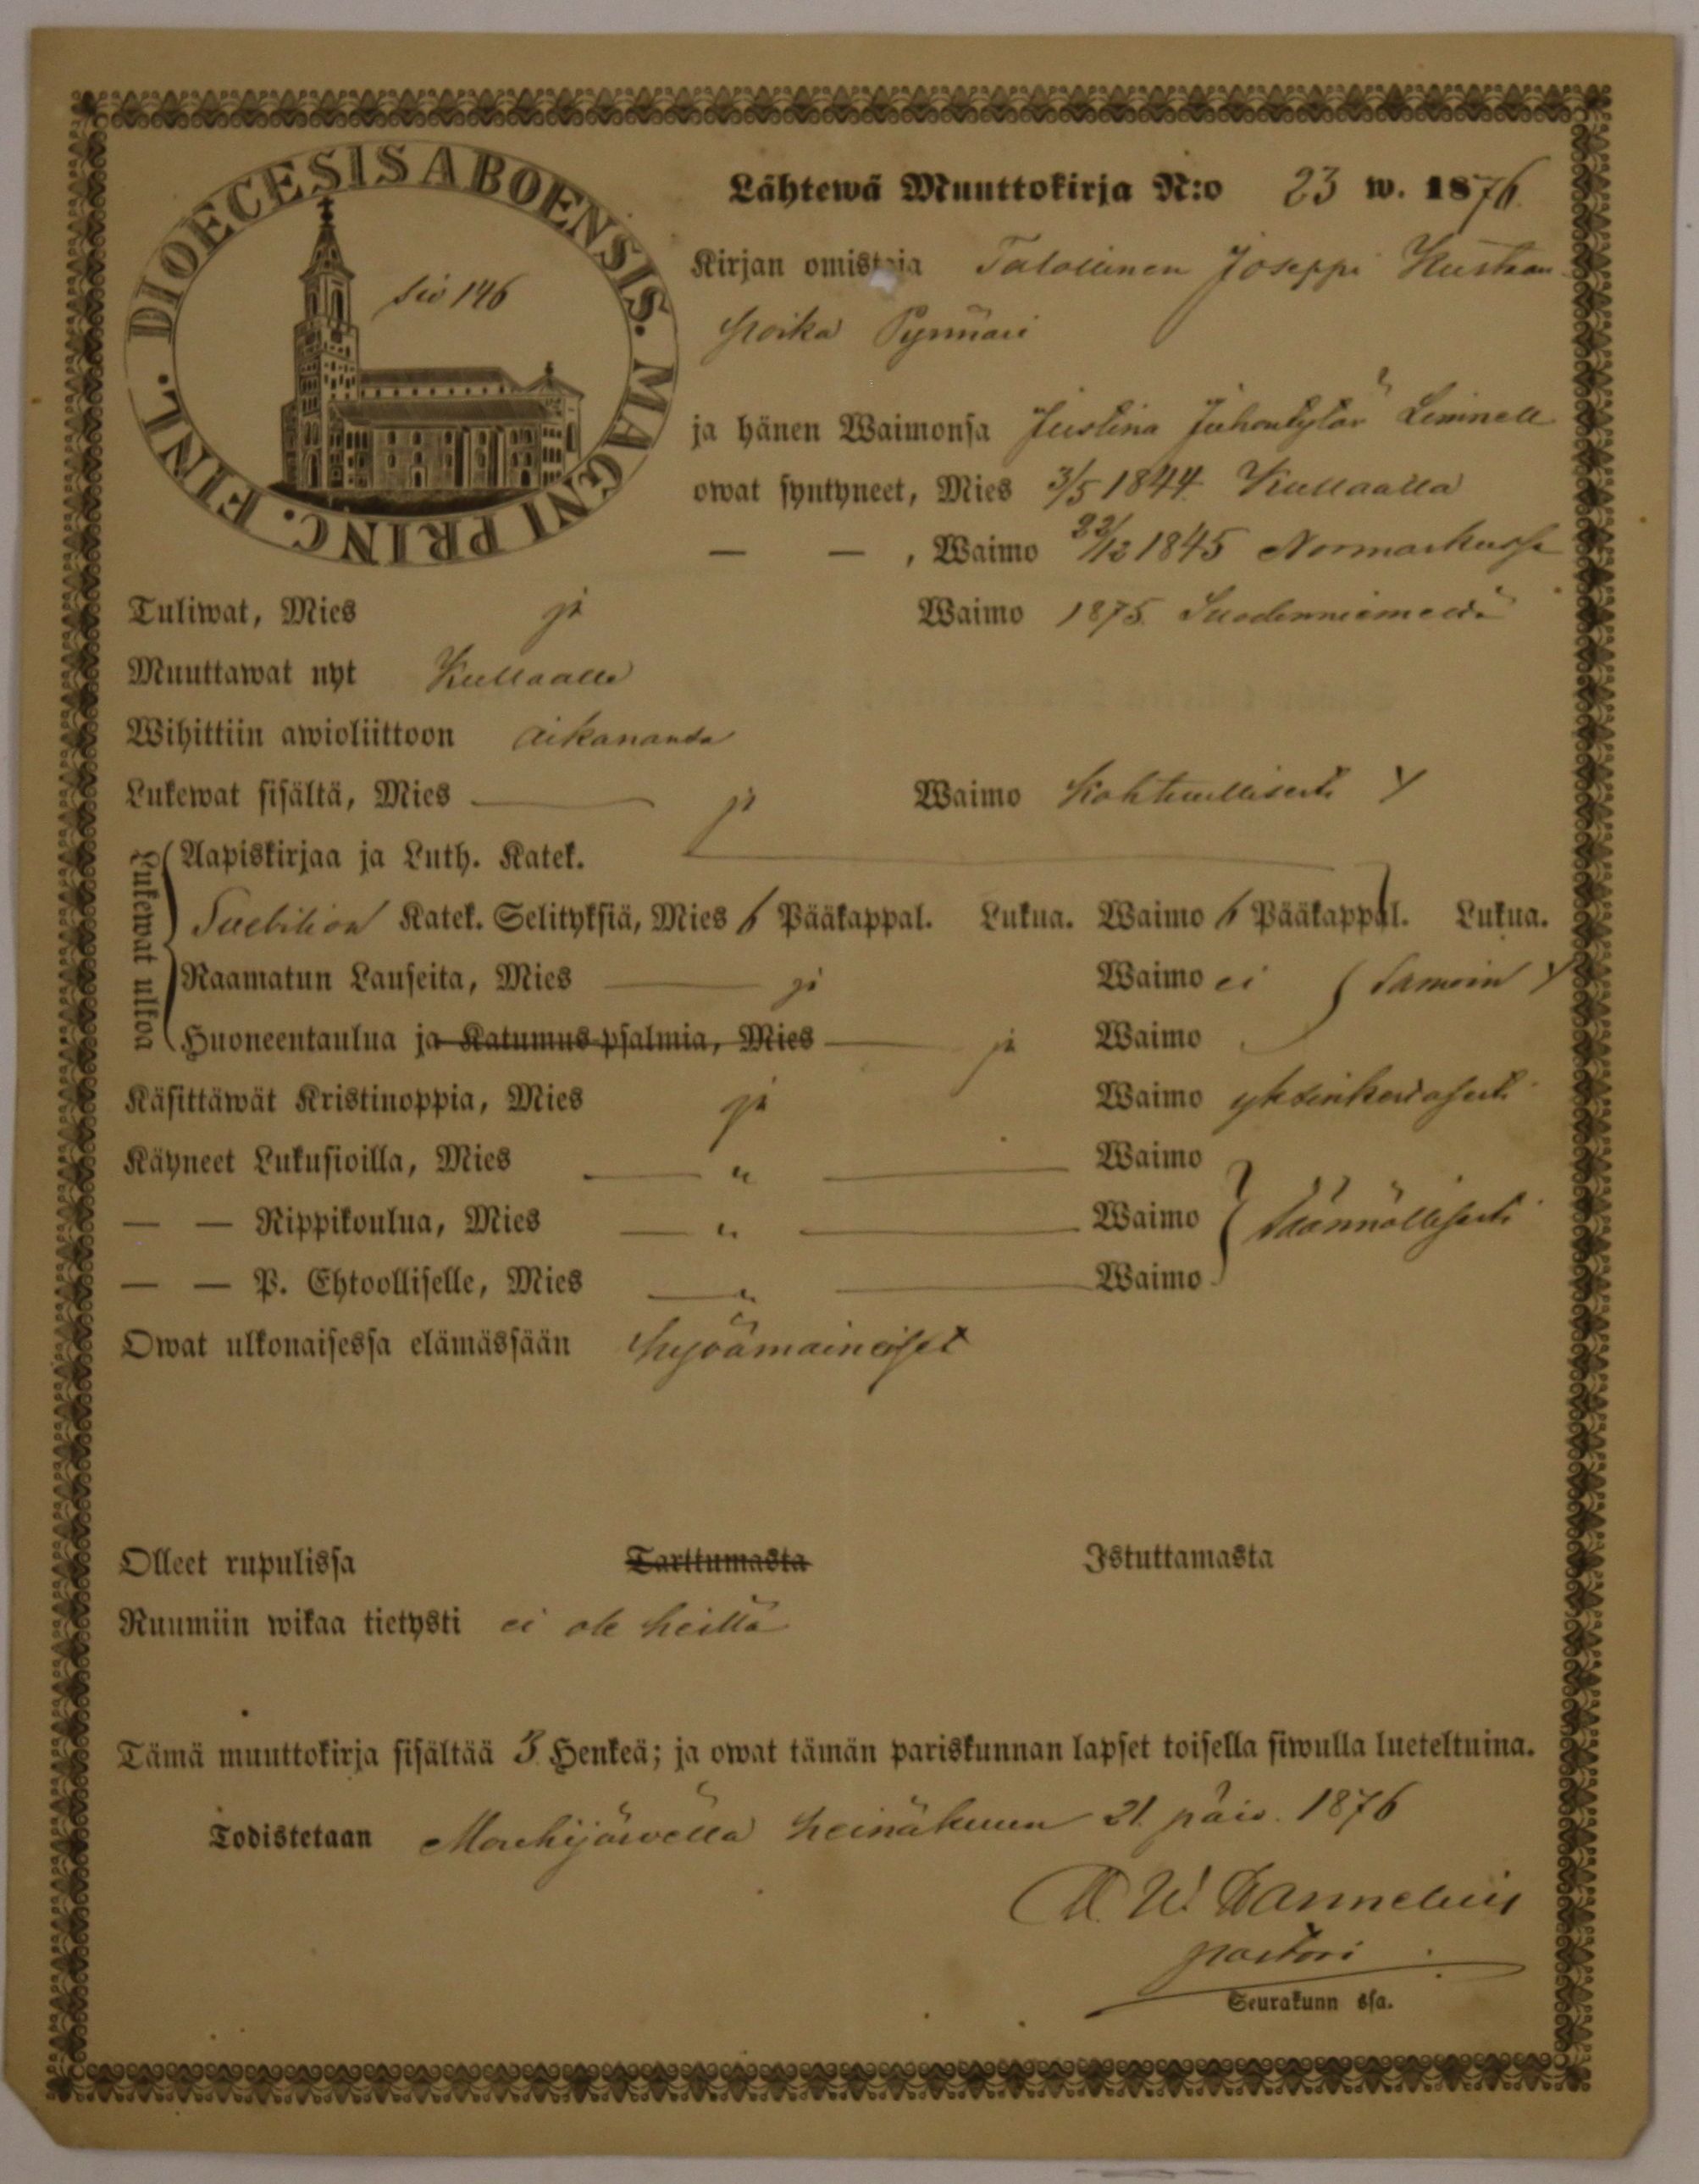 DIOECESIS ABOENSIS. MAGNI PRINC. FINL.
siv 146
Lähtewä Muuttokirja N:o 23 w. 1876.
Kirjan omistaja Talollinen Joseppi Kustaan
poika
ja hänen Waimonsa Justina Juhontytär
owat syntyneet, Mies 3/5 1844 Kullaalla
— — , Waimo 22/12 1845 Normarkussa
Tuliwat, Mies ja Waimo 1875 Suodenniemeltä
Muuttawat nyt Kullaalle
Wihittiin awioliittoon aikanansa
Lukewat sisältä, Mies — ja Waimo Kohtuullisesti
Lukewat ulkoa
Aapiskirjaa ja Luth. Katek.
Katek. Selityksiä, Mies 6 Pääkappal. Lukua. Waimo 6 Pääkappal. Lukua.
Raamatun Lauseita, Mies — ja Waimo ei samoin
Huoneentaulua ja Katumus-psalmia, Mies — ja Waimo
Käsittäwät Kristinoppia, Mies ja Waimo yksinkertasesti
Käyneet Lukusioilla, Mies — " — Waimo
— — Rippikoulua, Mies — " — Waimo säännöllisesti
— — P. Ehtoolliselle, Mies — " — Waimo
Owat ulkonaisessa elämässään hyvämaineiset
Olleet rupulissa Tarttumasta Istuttamasta
Ruumiin wikaa tietysti ei ole heillä
Tämä muuttokirja sisältää 3 Henkeä; ja owat tämän pariskunnan lapset toisella siwulla lueteltuina.
Todistetaan Mouhijärvellä heinäkuun 21 päiv. 1876
pastori
Seurakunn ssa.